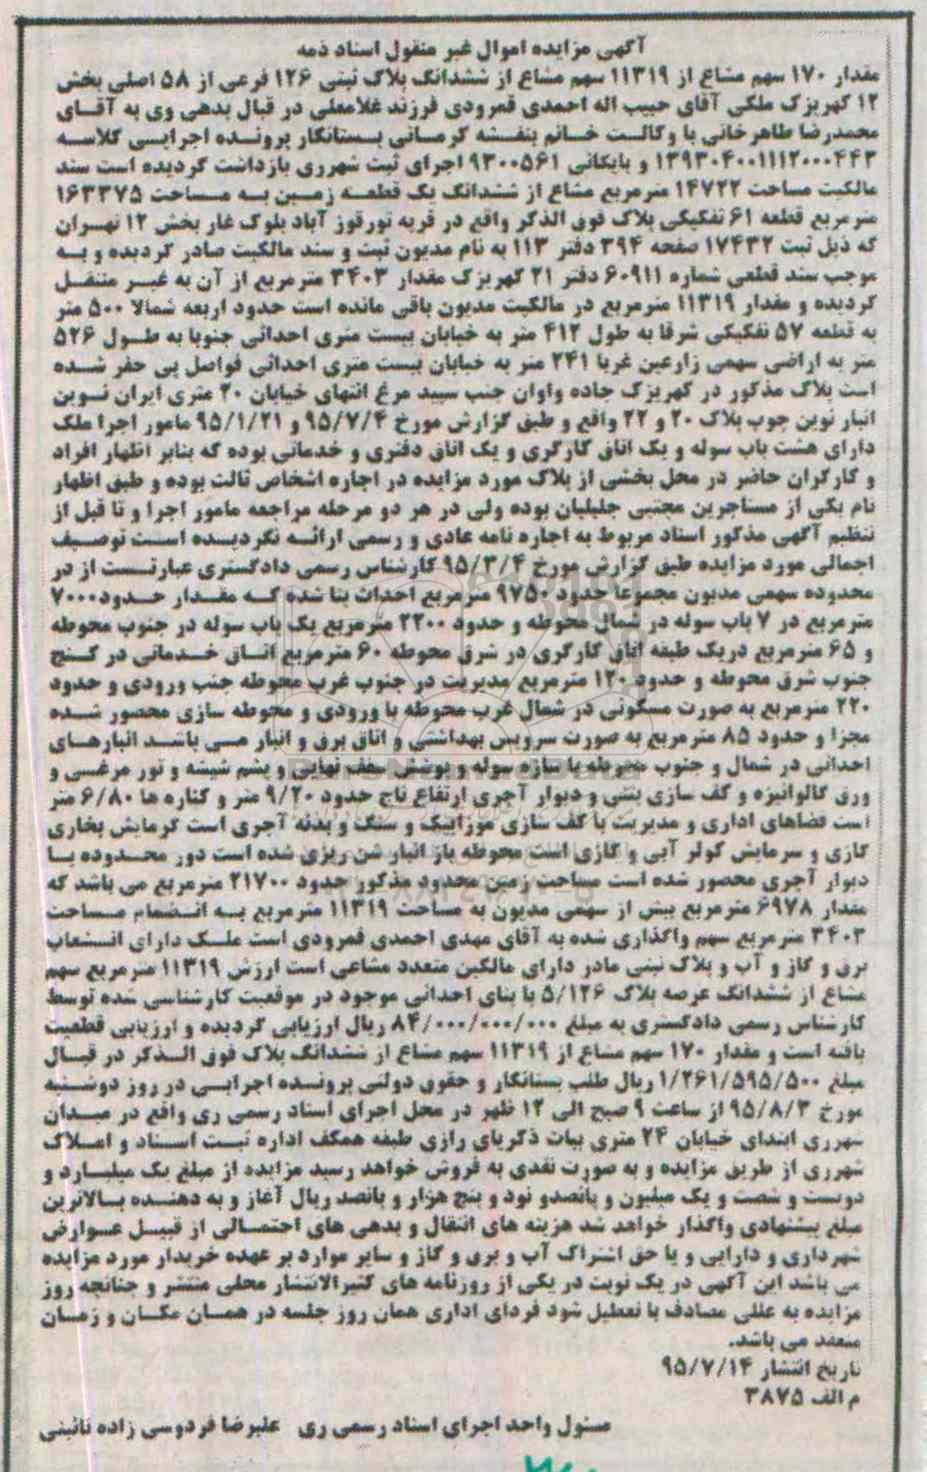 آگهی مزایده اموال غیر منقول اسناد ذمه
مقدار ۱۷۰ سهم مشاع از ۱۱۳۱۹ سهم مشاع از ششدانگ پلاک ثبتی ۱۲۶ فرعی از ۵۸ اصلی بخش
۱۲ کهریزک ملکی آقای حبیب اله احمدی قمرودی فرزند غلامعلی در قبال بدهی وی به آقای
محمدرضا طاهرخانی با وکالت خانم بنفشه کرمانی بستانکار پرونده اجرایی کلاسه
۱۳۹۳۰۴۰۰۱۱۱۲۰۰۰۴۴۳ و بایگانی ۹۳۰۰۵۶۱ اجرای ثبت شهرری بازداشت گردیده است سند
مالکیت مساحت ۱۴۷۲۲ مترمربع مشاع از ششدانگ یک قطعه زمین به مساحت ۱۶۳۳۷۵
مترمربع قطعه ۶۱ تفکیکی پلاک فوق الذکر واقع در قریه تورقوز آباد بلوک غار بخش ۱۲ تهران
که ذیل ثبت ۱۷۴۳۲ صفحه ۳۹۴ دفتر ۱۱۳ به نام مدیون ثبت و سند مالکیت صادر گردیده و به
موجب سند قطعی شماره ۶۰۹۱۱ دفتر ۲۱ کهریزک مقدار ۳۴۰۳ مترمربع از آن به غیر منتقل
گردیده و مقدار ۱۱۳۱۹ مترمربع در مالکیت مدیون باقی مانده است حدود اربعه شمالا ۵۰۰ متر
به قطعه ۵۷ تفکیکی شرقا به طول ۴۱۲ متر به خیابان بیست متری احداثی جنوبا به طول ۵۲۶
متر به اراضی سهمی زارعین غربا ۲۴۱ متر به خیابان بیست متری احداثی فواصل پی حفر شده
است پلاک مذکور در کهریزک جاده واوان جنب سپید مرغ انتهای خیابان ۲۰ متری ایران نوین
انبار نوین چوب پلاک ۲۰ و ۲۲ واقع و طبق گزارش مورخ ۹۵/۷/۴ و ۹۵/۱/۲۱ مامور اجرا ملک
دارای هشت باب سوله و یک اتاق کارگری و یک اتاق دفتری و خدماتی بوده که بنابر اظهار افراد
و کارگران حاضر در محل بخشی از پلاک مورد مزایده در اجاره اشخاص ثالث بوده و طبق اظهار
نام یکی از مستاجرین مجتبی جلیلیان بوده ولی در هر دو مرحله مراجعه مامور اجرا و تا قبل از
تنظیم آگهی مذکور اسناد مربوط به اجاره نامه عادی و رسمی ارائه نگردیده است توصیف
اجمالی مورد مزایده طبق گزارش مورخ ۹۵/۳/۴ کارشناس رسمی دادگستری عبارتست از در
محدوده سهمی مدیون مجموعا حدود ۹۷۵۰ مترمربع احداث بنا شده که مقدار حدود ۷۰۰۰
مترمربع در ۷ باب سوله در شمال محوطه و حدود ۲۲۰۰ مترمربع یک باب سوله در جنوب محوطه
و ۶۵ مترمربع دریک طبقه اتاق کارگری در شرق محوطه ۶۰ مترمربع اتاق خدماتی در کنج
جنوب شرق محوطه و حدود ۱۲۰ مترمربع مدیریت در جنوب غرب محوطه جنب ورودی و حدود
۲۲۰ مترمربع به صورت مسکونی در شمال غرب محوطه با ورودی و محوطه سازی محصور شده
مجزا و حدود ۸۵ مترمربع به صورت سرویس بهداشتی و اتاق برق و انبار می باشد انبارهای
احداثی در شمال و جنوب محوطه با سازه سوله و پوشش سقف نهایی و پشم شیشه و تور مرغی و
ورق گالوانیزه و کف سازی بتنی و دیوار آجری ارتفاع تاج حدود ۹/۲۰ متر و کناره ها ۶/۸۰ متر
است فضاهای اداری و مدیریت با کف سازی موزاییک و سنگ و بدنه آجری است گرمایش بخاری
گازی و سرمایش کولر آبی و گازی است محوطه باز انبار شن ریزی شده است دور محدوده با
دیوار آجری محصور شده است مساحت زمین محدود مذکور حدود ۲۱۷۰۰ مترمربع می باشد که
مقدار ۶۹۷۸ مترمربع بیش از سهمی مدیون به مساحت ۱۱۳۱۹ مترمربع به انضمام مساحت
۳۴۰۳ مترمربع سهم واگذاری شده به آقای مهدی احمدی قمرودی است ملک دارای انشعاب
برق و گاز و آب و پلاک ثبتی مادر دارای مالکین متعدد مشاعی است ارزش ۱۱۳۱۹ مترمربع سهم
مشاع از ششدانگ عرصه پلاک ۵/۱۲۶ با بنای احداثی موجود در موقعیت کارشناسی شده توسط
کارشناس رسمی دادگستری به مبلغ ۸۴/۰۰۰/۰۰۰/۰۰۰ ریال ارزیابی گردیده و ارزیابی قطعیت
یافته است و مقدار ۱۷۰ سهم مشاع از ۱۱۳۱۹ سهم مشاع از ششدانگ پلاک فوق الذکر در قبال
مبلغ ۱/۲۶۱/۵۹۵/۵۰۰ ریال طلب بستانکار و حقوق دولتی پرونده اجرایی در روز دوشنبه
مورخ ۹۵/۸/۳ از ساعت ۹ صبح الی ۱۲ ظهر در محل اجرای اسناد رسمی ری واقع در میدان
شهرری ابتدای خیابان ۲۴ متری بیات ذکریای رازی طبقه همکف اداره ثبت اسناد و املاک
شهرری از طریق مزایده و به صورت نقدی به فروش خواهد رسید مزایده از مبلغ یک میلیارد و
دویست و شصت و یک میلیون و پانصدو نود و پنج هزار و پانصد ریال آغاز و به دهنده بالاترین
مبلغ پیشنهادی واگذار خواهد شد هزینه های انتقال و بدهی های احتمالی از قبیل عوارض
شهرداری و دارایی و یا حق اشتراک آب و برق و گاز و سایر موارد بر عهده خریدار مورد مزایده
می باشد این آگهی در یک نوبت در یکی از روزنامه های کثیرالانتشار محلی منتشر و چنانچه روز
مزایده به عللی مصادف با تعطیل شود فردای اداری همان روز جلسه در همان مکان و زمان
منعقد می باشد.
تاریخ انتشار ۹۵/۷/۱۴
م الف ۳۸۷۵
مسئول واحد اجرای اسناد رسمی ری علیرضا فردوسی زاده نائینی